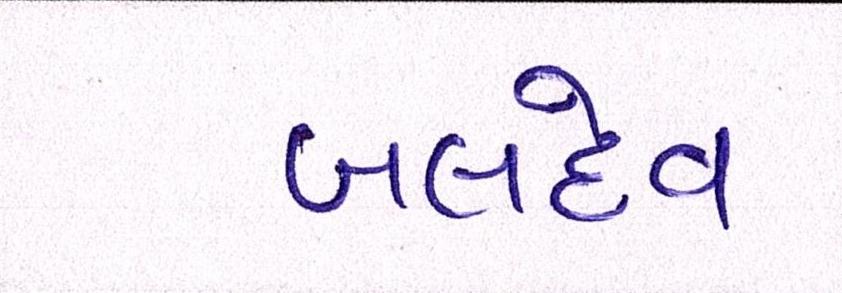 બલદેવ